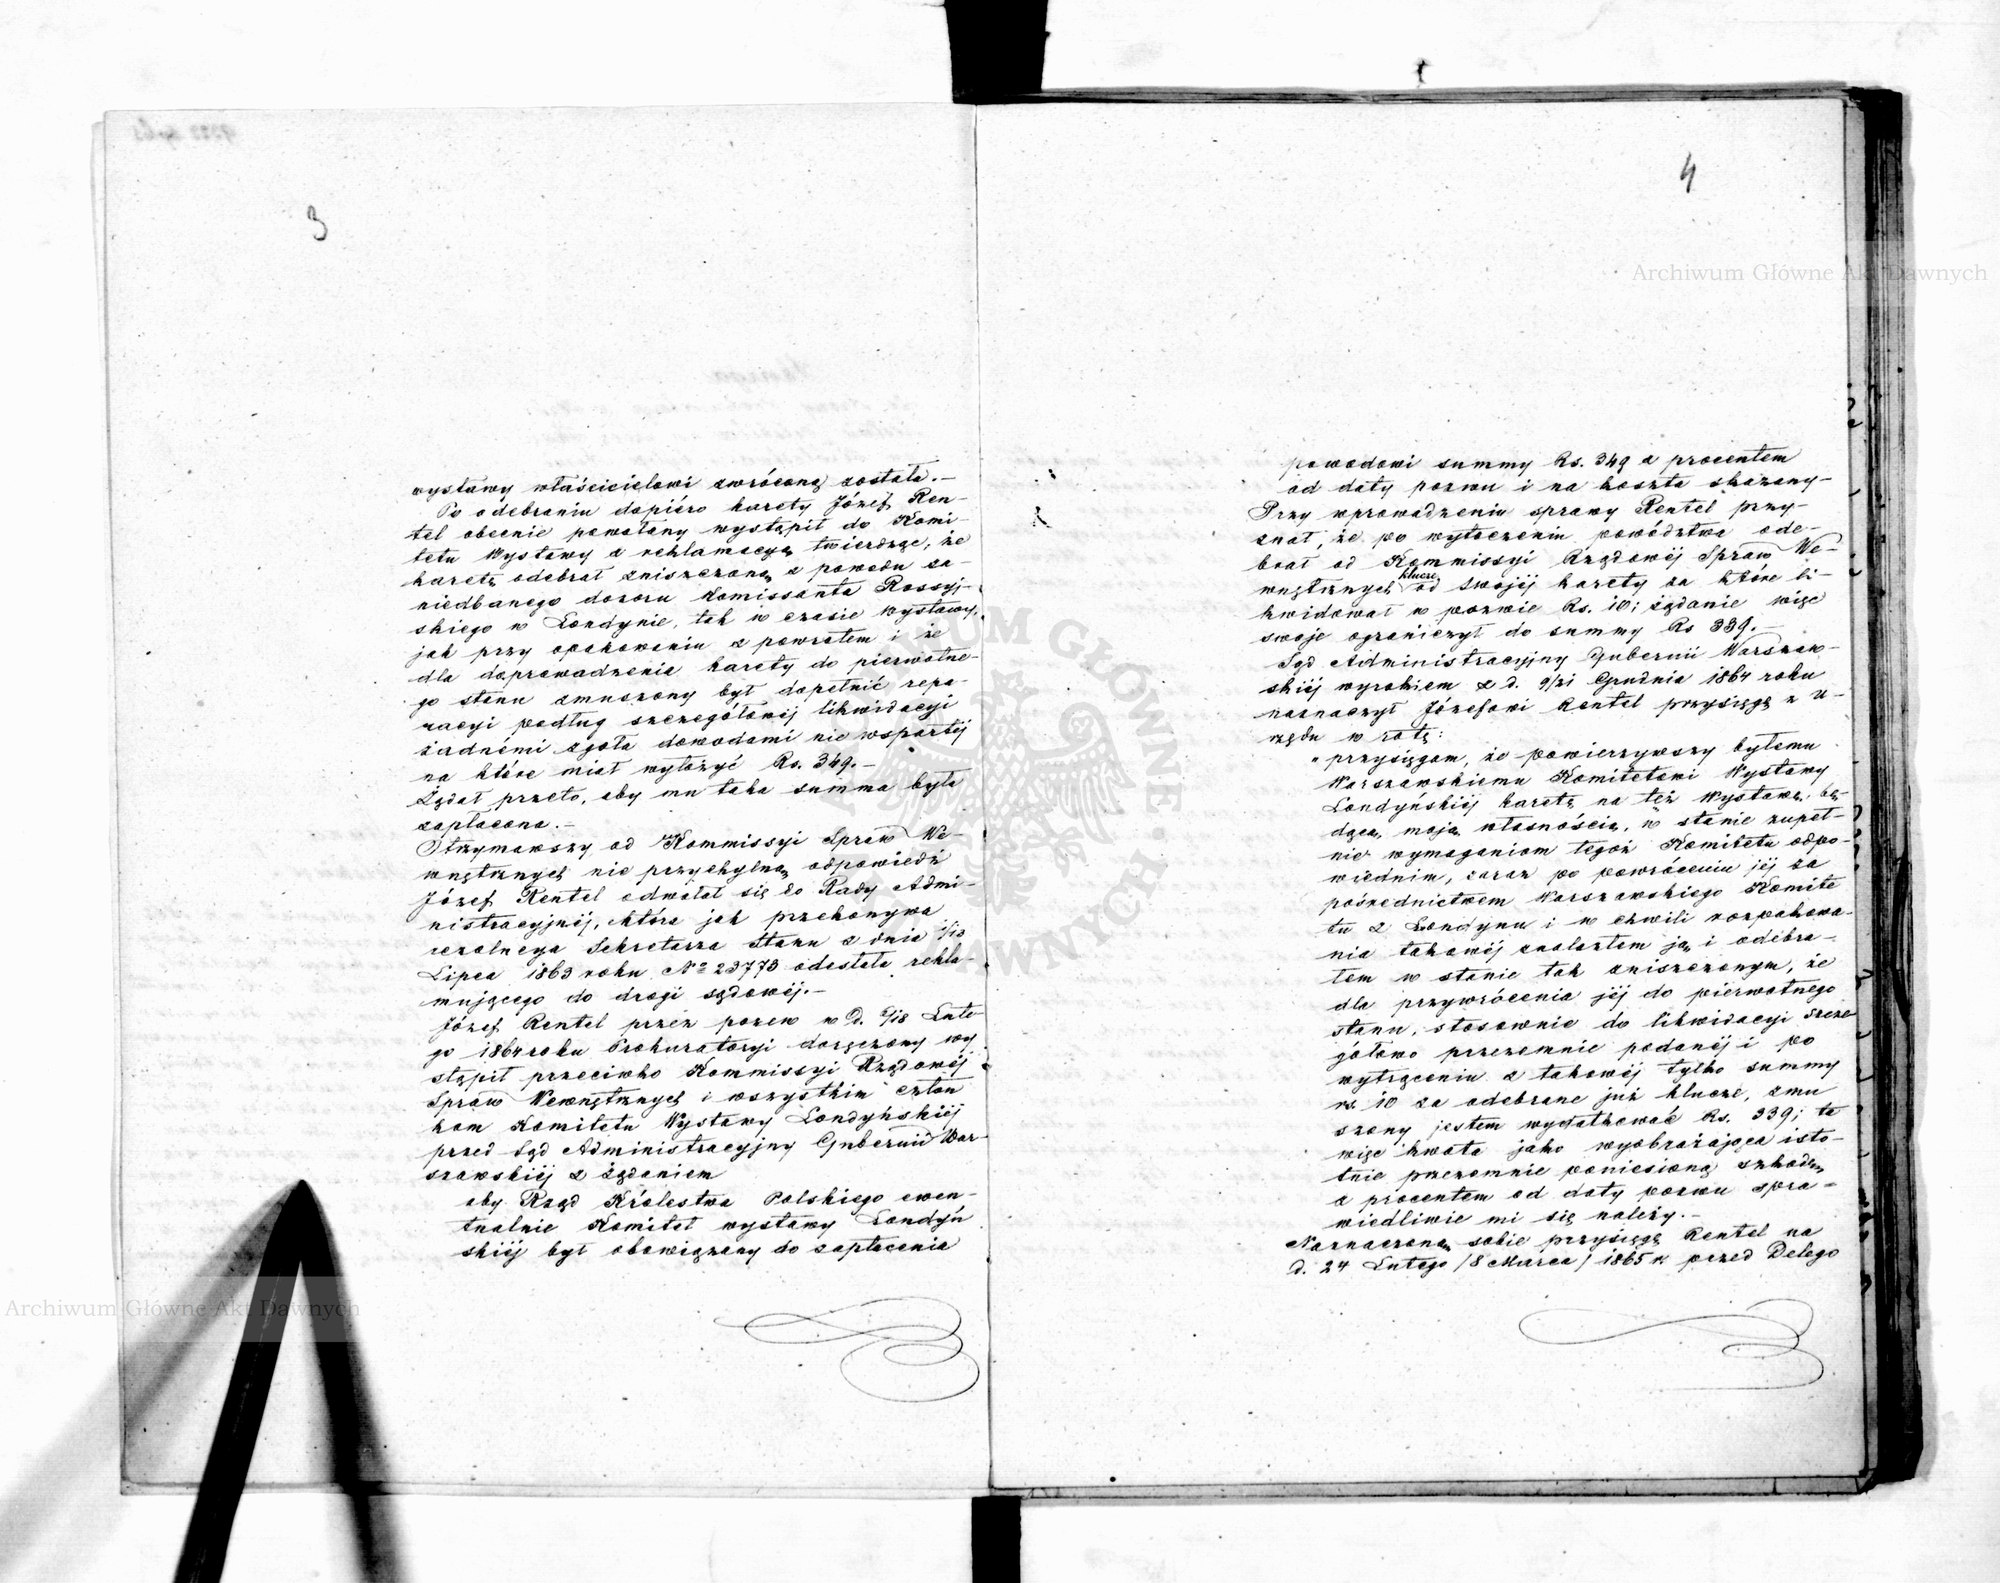 3
wystawy właścicielowi zwróconą została.—
Po odebraniu dopiéro karety Józef Ren-
tel obecnie powołany wystąpił do Komi-
tetu Wystawy z reklamacyą twierdząc, że
karetę odebrał zniszczoną z powodu za-
niedbanego dozoru Komissanta Rossyj-
skiego w Londynie, tak w czasie wystawy,
jak przy opakowaniu z powrotem i że
dla doprowadzenia karety do pierwotne-
go stanu zmuszony był dopełnić repa-
racyi podług szczegółowéj likwidacyi
żadnémi zgoła dowodami nie wspartéj
na które miał wyłożyć Rs. 349.—
Żądał przeto, aby mu taka summa była
zapłacona.—
Otrzymawszy od Kommissyi Spraw We-
wnętrznych nie przychylną odpowiedź
Józef Rentel odwołał się do Rady Admi-
nistracyjnéj, która jak przekonywa
rezolucya Sekretarza Stanu z dnia 1/13
Lipca 1863 roku No 23773 odesłała rekla-
mującego do drogi sądowéj.—
Józef Rentel przez pozew w D. 6/18 Lute-
go 1864 roku Prokuratoryi doręczony wy
stąpił przeciwko Kommissyi Rządowéj
Spraw Wewnętrznych i wszystkim człon
kom Komitetu Wystawy Londyńskiéj
przed Sąd Administracyjny Gubernii War-
szawskiéj z żądaniem
aby Rząd Królestwa Polskiego ewen-
tualnie Komitet wystawy Londyń
skiéj był obowiązany do zapłacenia
4
powodowi summy Rs. 349 z procentem
od daty pozwu i na koszta skazany—
Przy wprowadzeniu sprawy Rentel przy-
znał, że po wytoczeniu powództwa ode-
brał od Kommissyi Rządowéj Spraw We-
wnętrznych klucze od swojéj karety za które li-
kwidował w pozwie Rs. 10; żądanie więc
swoje ograniczył do summy Rs 339.—
Sąd Administracyjny Gubernii Warszaw-
skiéj wyrokiem z d. 9/21 Grudnia 1864 roku
naznaczył Józefowi Rentel przysięgę z u-
rzędu w rotę:
"przysięgam, że powierzywszy byłemu
Warszawskiemu Komitetowi Wystawy
Londyńskiéj karetę na też Wystawę, bę-
dącą moją własnością, w stanie zupeł-
nie wymaganiom tegoż Komitetu odpo-
wiednim, zaraz po powróceniu jéj za
pośrednictwem Warszawskiego Komite
tu z Londynu i w chwili rozpakowa-
nia takowéj znalazłem ją i odebra-
łem w stanie tak zniszczonym, że
dla przywrócenia jéj do pierwotnego
stanu, stosownie do likwidacyi szcze
gółowo przezemnie podanéj i po
wytrąceniu z takowéj tylko summy
rs. 10 za odebrane już klucze, zmu
szony jestem wydatkować Rs. 339; ta
więc kwota jako wyobrażająca isto-
tnie przezemnie poniesioną szkodę,
z procentem od daty pozwu spra-
wiedliwie mi się należy.—
Naznaczoną sobie przysięgę Rentel na
d. 24 Lutego /8 Marca/ 1865 r. przed Delego
Archiwum Główne Akt Dawnych
Archiwum Główne Akt Dawnych